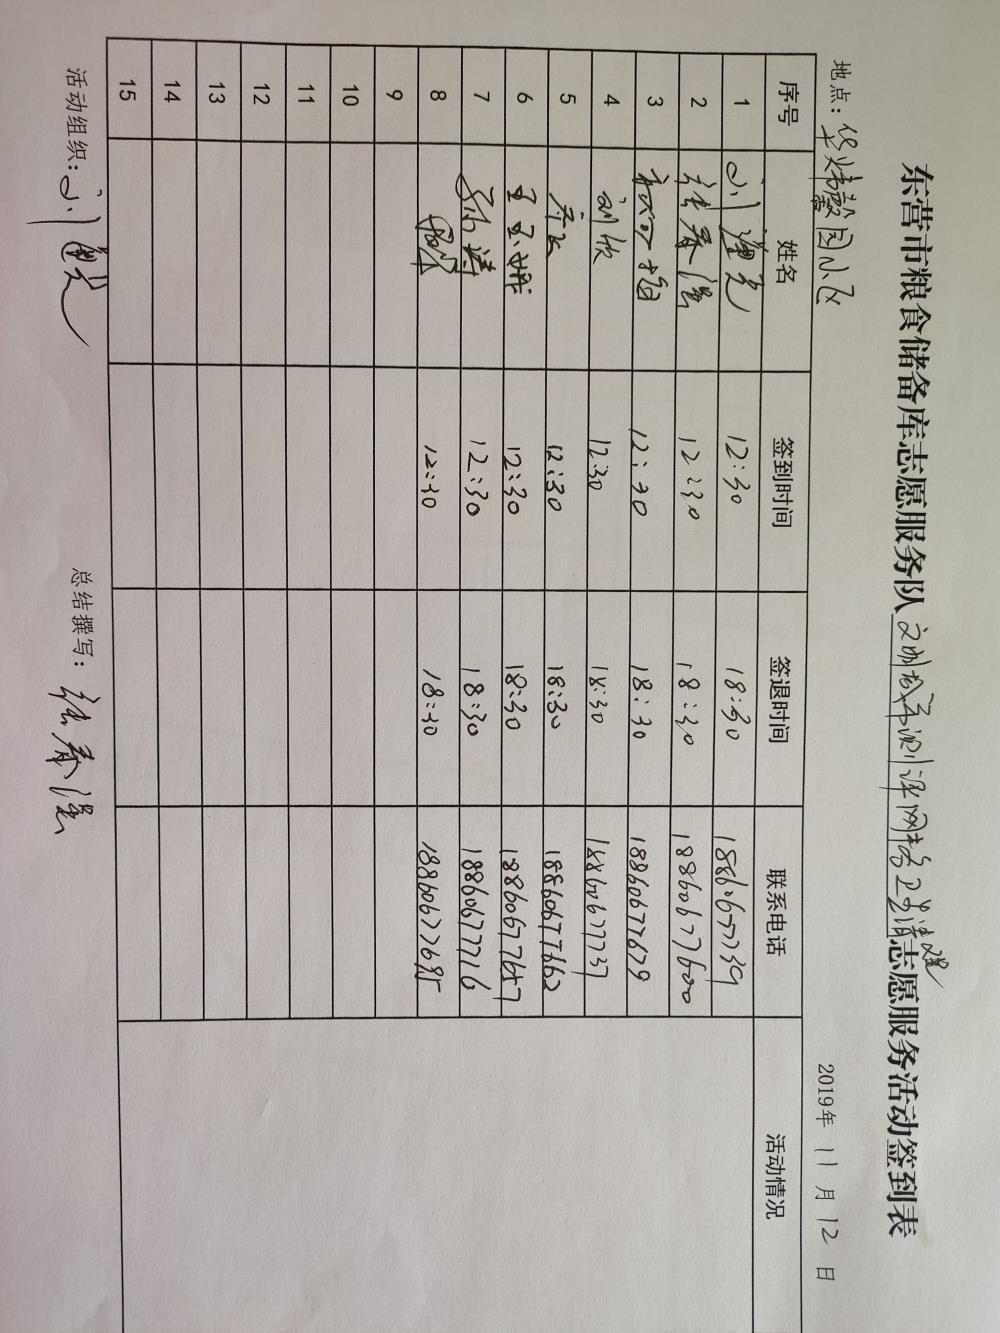 东营市粮食储备库志愿服务队文明城市测评网格卫生清理志愿服务活动签到表
地点：园小区 2019年 11月 12日
序号 姓名 签到时间 签退时间 联系电话 活动情况
1 12:30 18:30 18860677739
2 张春 12:30 18:30 18860677600
3 12:30 18:30 18860677679
4 刘欣 12:30 18:30 18860677737
5 12:30 18:30 18860677662
6 王玉 12:30 18:30 18860677657
7 12:30 18:30 18860677716
8 12:30 18:30 18860677695
9
10
11
12
13
14
15
活动组织： 总结撰写：张春